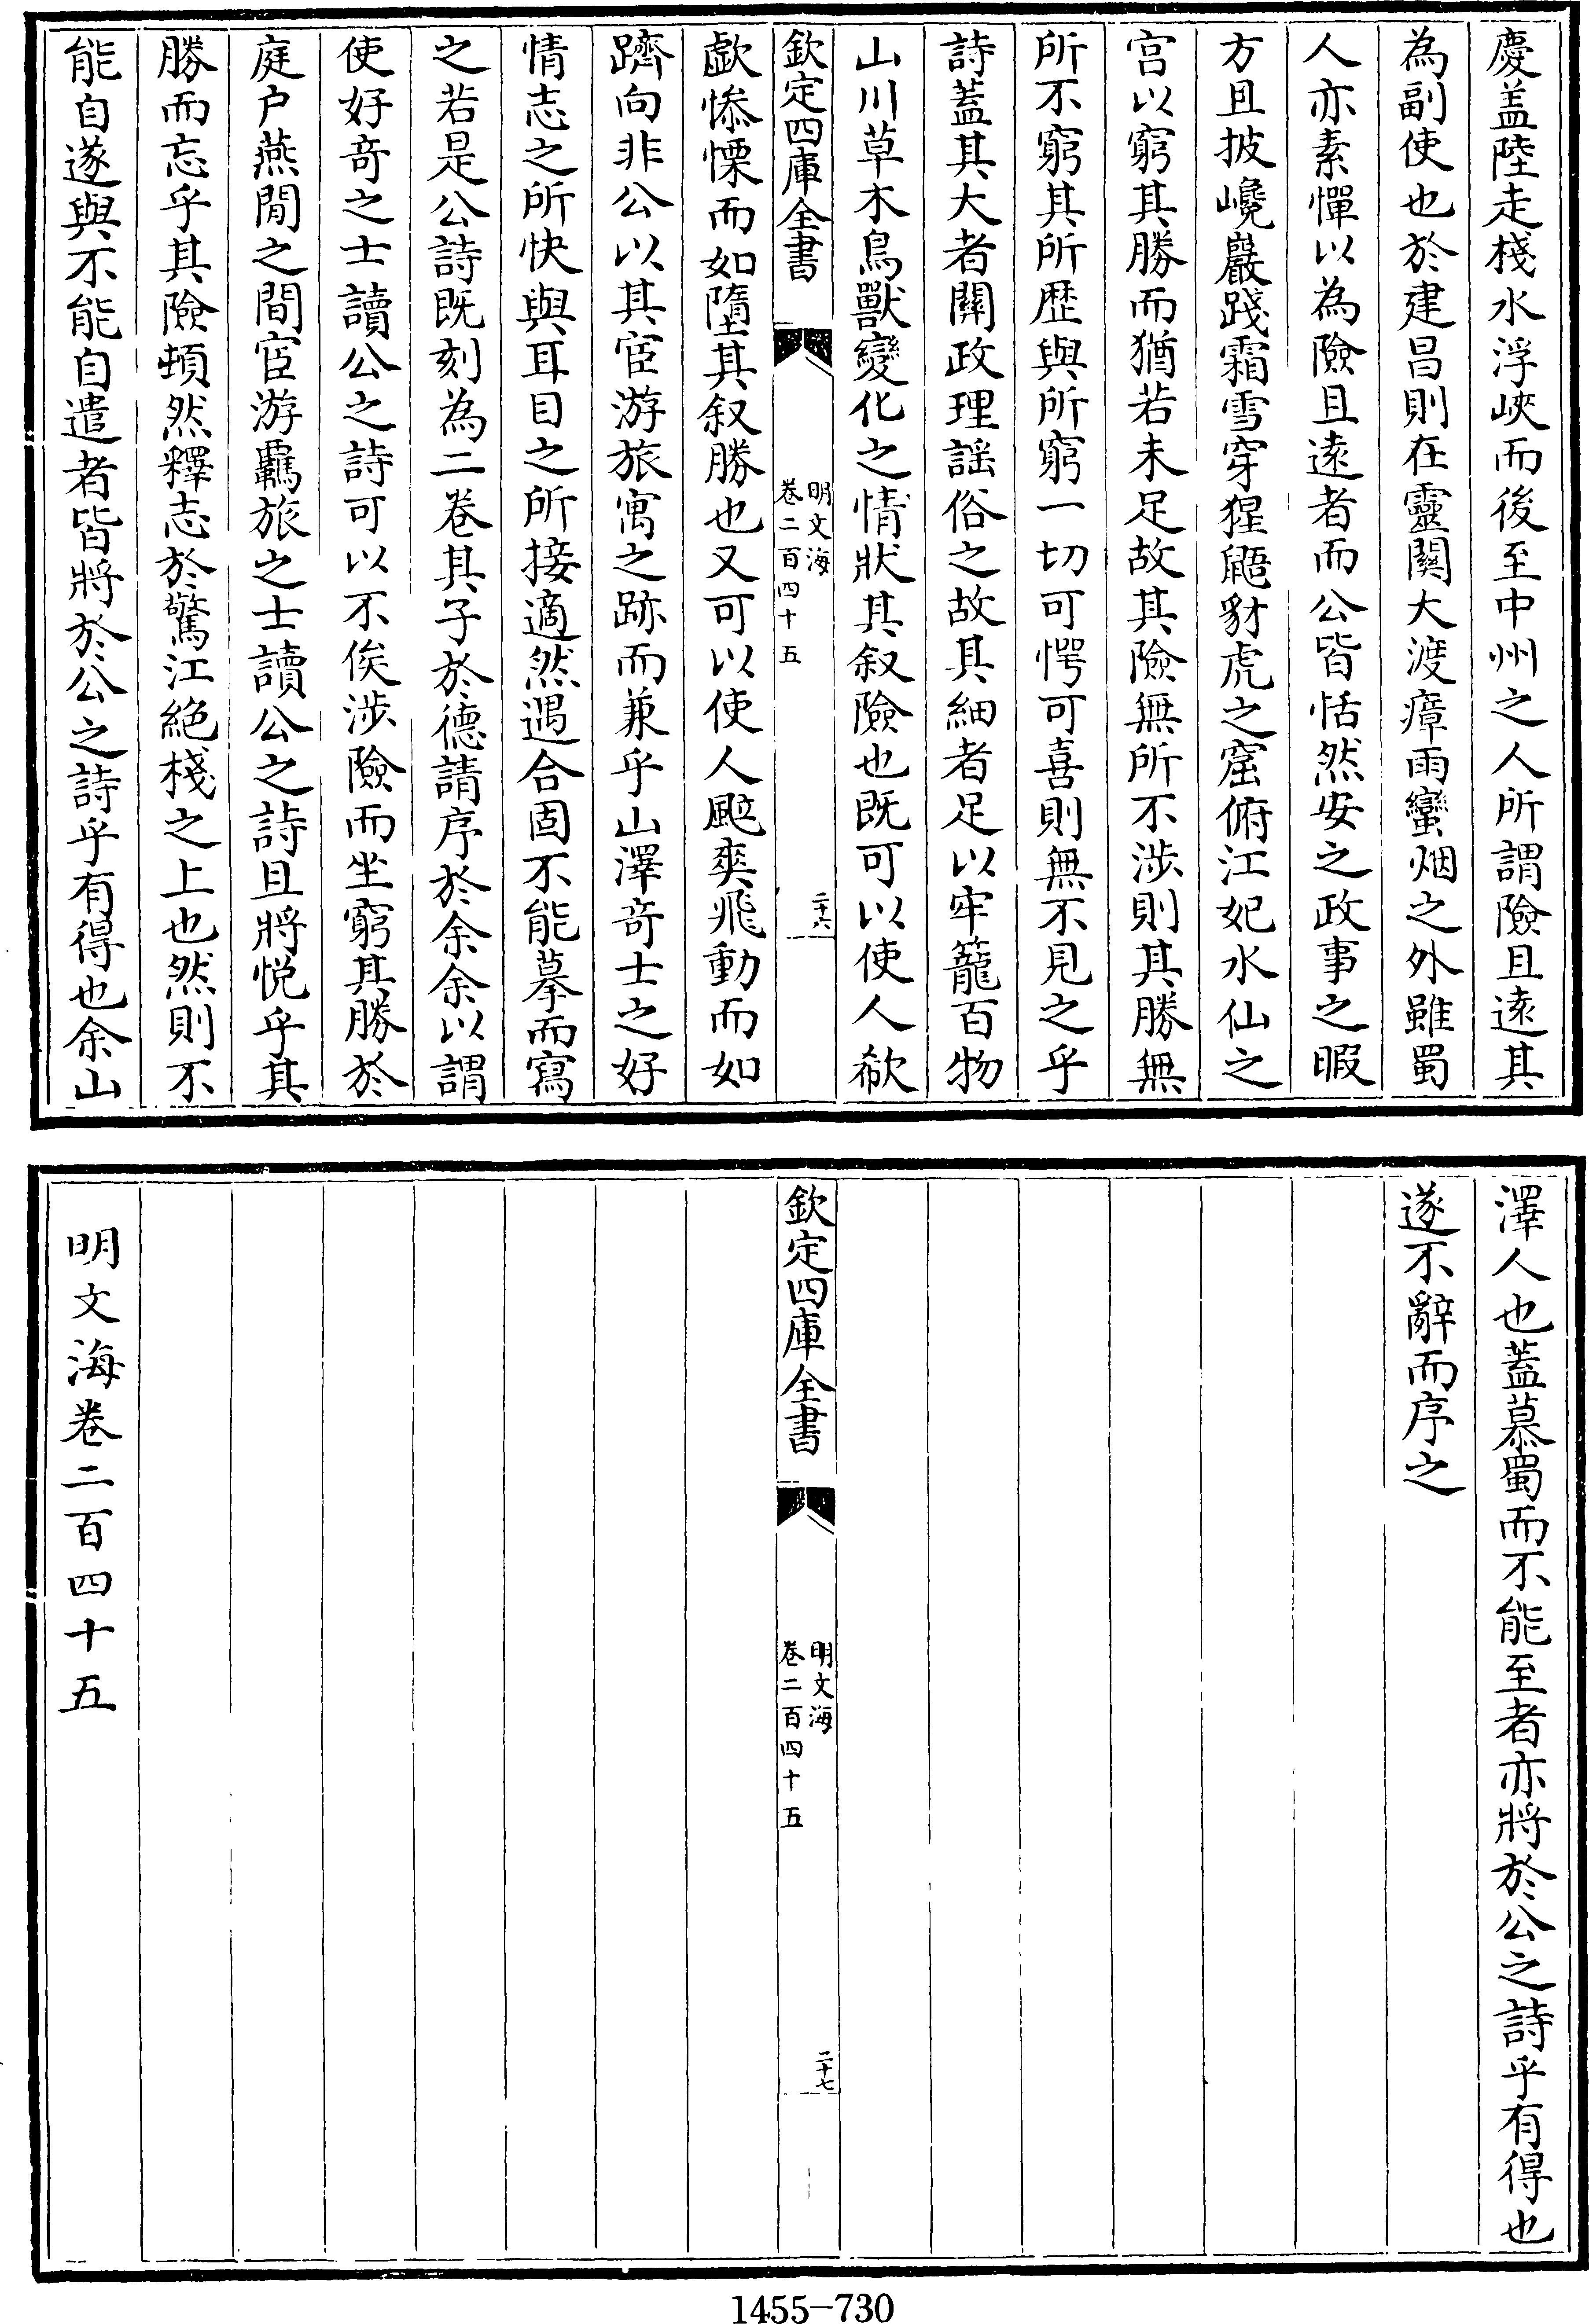 慶盖陸走棧水浮峽而後至中州之人所謂險且逺其
為副使也於建昌則在靈關大渡瘴雨蠻烟之外雖蜀
人亦素憚以為險且逺者而公皆恬然安之政事之暇
方且披巉巖踐霜雪穿猩鼯豺虎之窟俯江妃水仙之
宫以窮其勝而猶若未足故其險無所不渉則其勝無
所不窮其所歴與所窮一切可愕可喜則無不見之乎
詩蓋其大者關政理謡俗之故其細者足以牢籠百物
山川草木鳥獸變化之情狀其叙險也既可以使人欷
欽定四庫全書
明文海
卷二百四十五
二十六
歔慘慄而如墮其叙勝也又可以使人飈爽飛動而如
躋向非公以其宦游旅寓之跡而兼乎山澤竒士之好
情志之所快與耳目之所接適然遇合固不能摹而寫
之若是公詩既刻為二卷其子於德請序於余余以謂
使好竒之士讀公之詩可以不俟渉險而坐窮其勝於
庭户燕閒之間宦游羈旅之士讀公之詩且將悦乎其
勝而忘乎其險頓然釋志於驚江絶棧之上也然則不
能自遂與不能自遣者皆將於公之詩乎有得也余山
澤人也蓋慕蜀而不能至者亦將於公之詩乎有得也
遂不辭而序之
欽定四庫全書
明文海
卷二百四十五
二十七
明文海卷二百四十五
1455-730